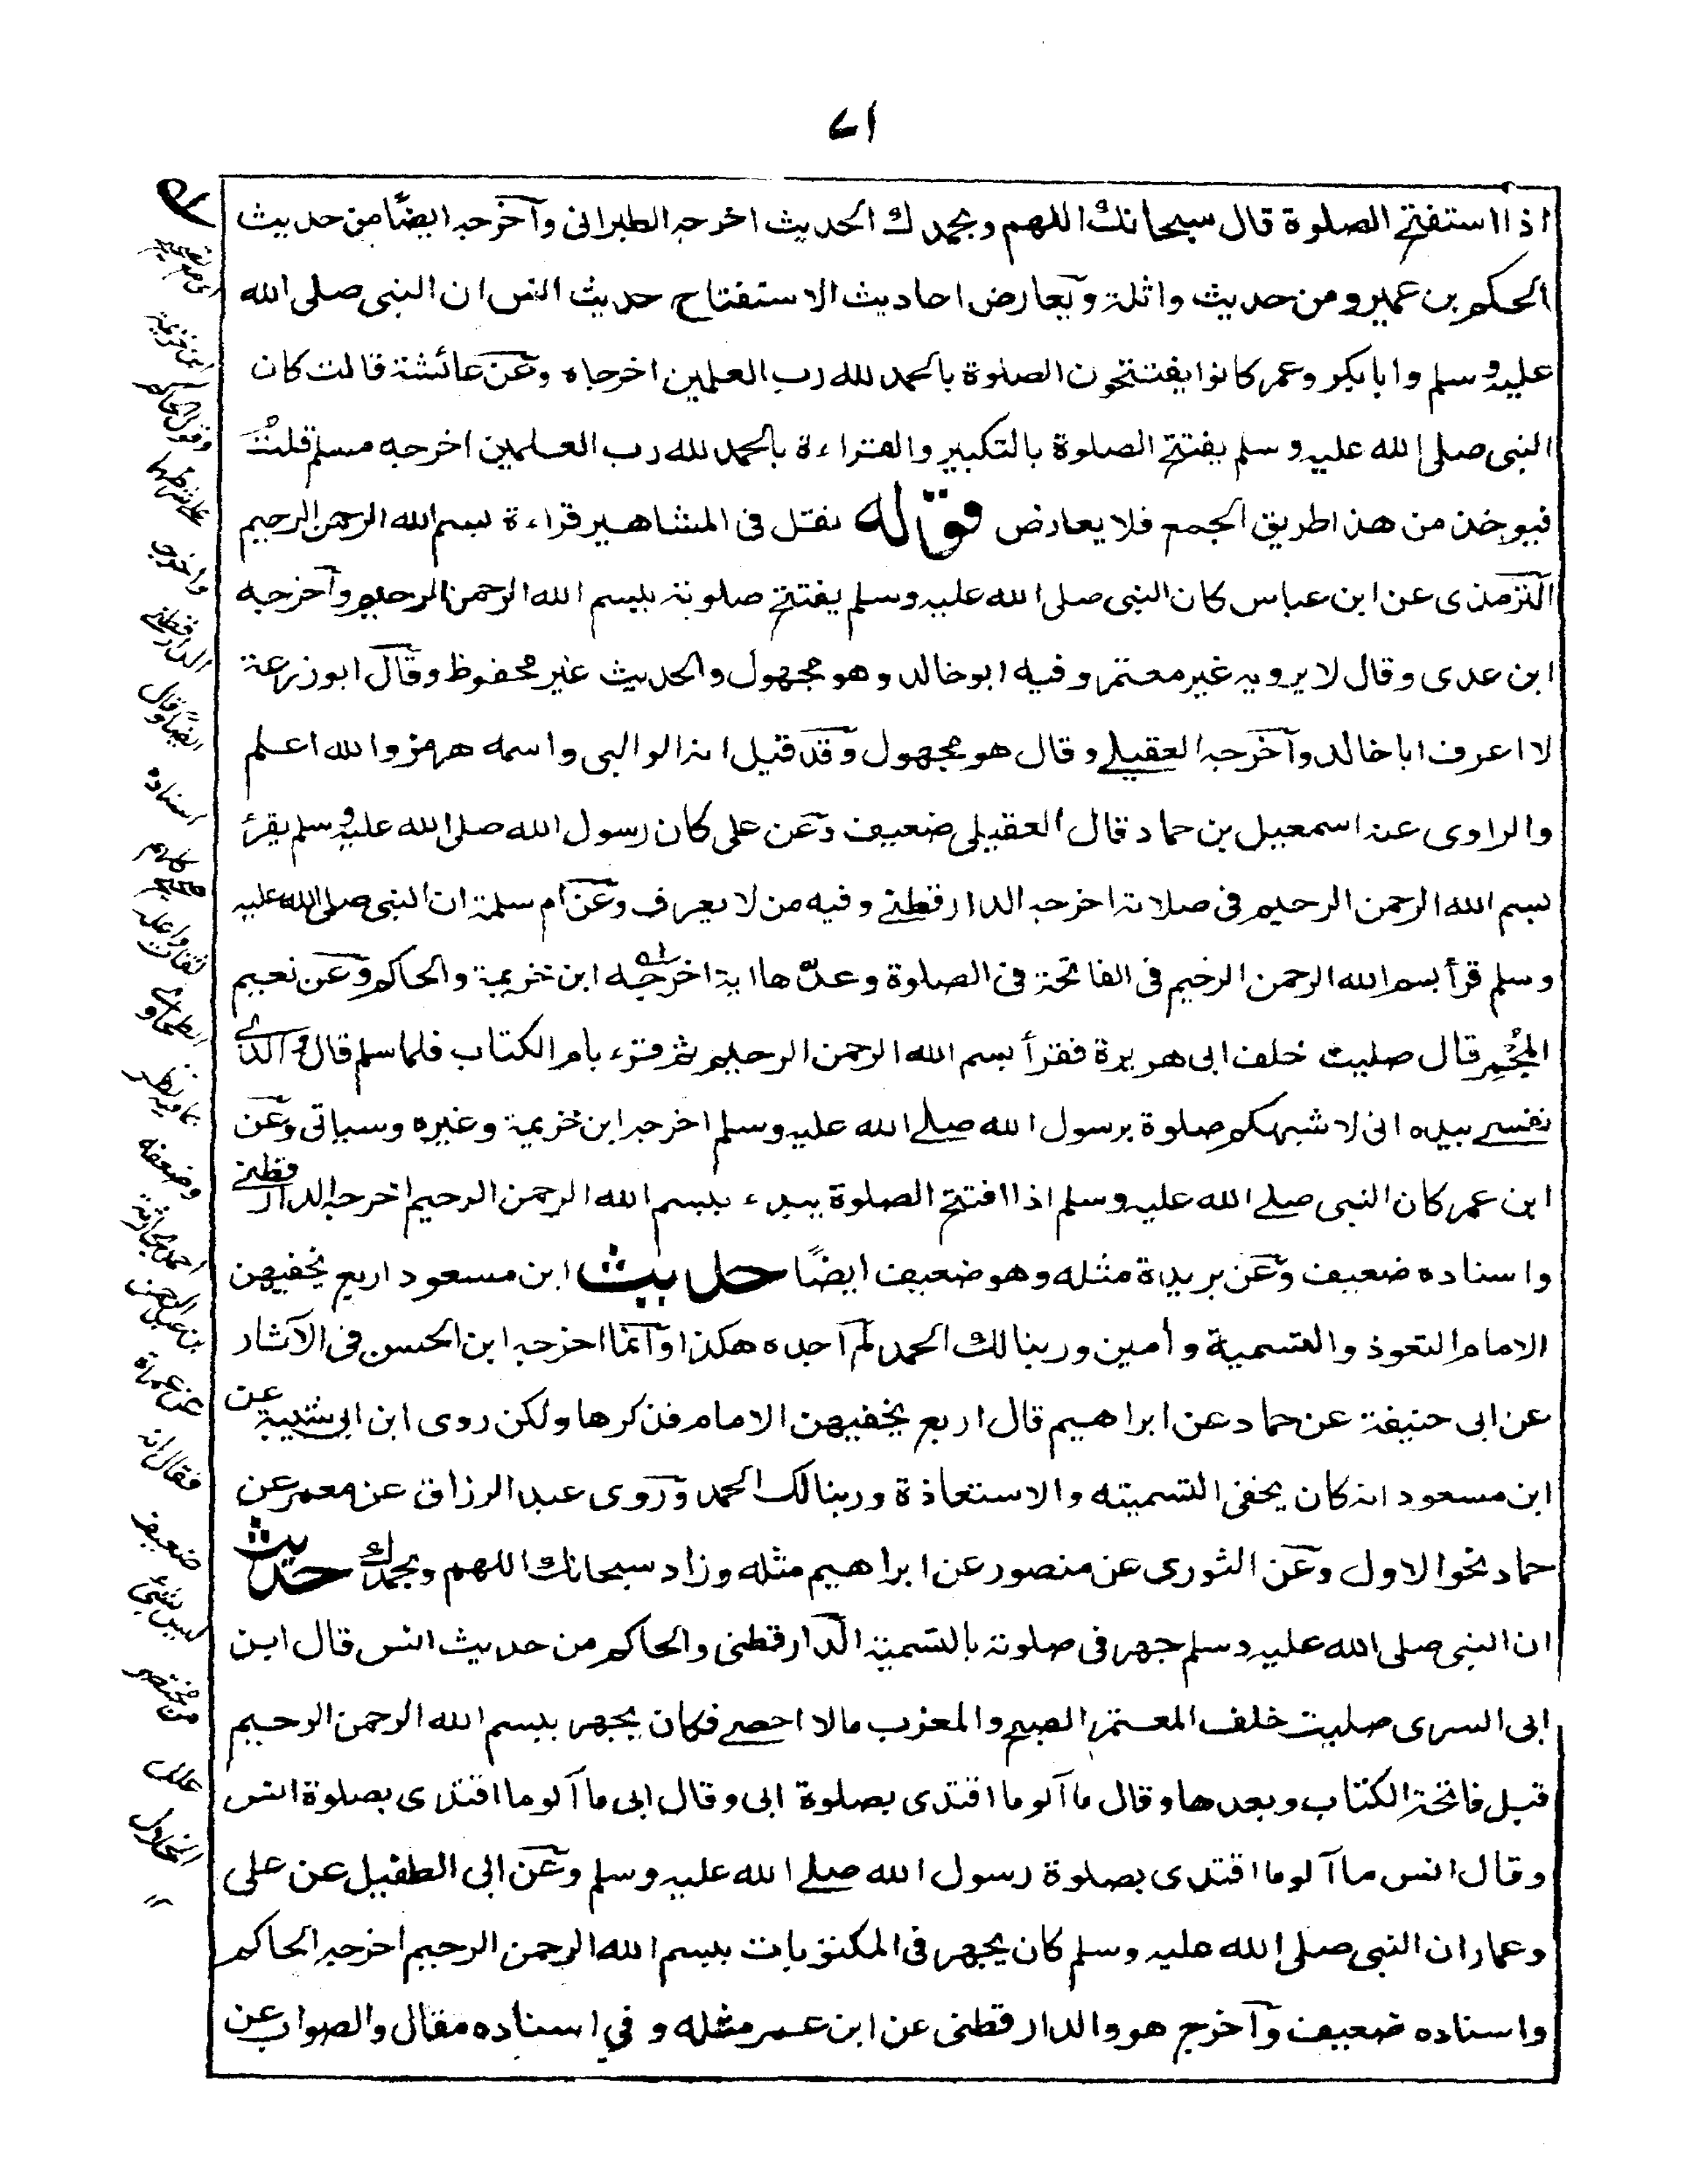 ٧١
اذا استفتح الصلوة قال سبحانك اللهم وبحمدك الحديث اخرجه الطبرانى وآخرجه ايضًا من حديث
الحكم بن عمير ومن حديث واثلة ويعارض احاديث الاستفتاح حديث انس ان النبى صلى الله
عليه وسلم وابا بكر وعمر كانوا يفتتحون الصلوة بالحمد لله رب العلمين اخرجاه وعن عائشة قالت كان
النبى صلى الله عليه وسلم يفتتح الصلوة بالتكبير والقراءة بالحمد لله رب العلمين اخرجه مسلم قلت
فيوخذ من هذا طريق الجمع فلا يعارض قوله نقل فى المشاهير قراءة بسم الله الرحمن الرحيم
الترمذى عن ابن عباس كان النبى صلى الله عليه وسلم يفتتح صلوته ببسم الله الرحمن الرحيم وآخرجه
ابن عدى وقال لا يرويه غير معتمر وفيه ابو خالد وهو مجهول والحديث غير محفوظ وقال ابو زرعة
لا اعرف ابا خالد وآخرجه العقيلے وقال هو مجهول وقد قيل انه الوالبى واسمه هرمز والله اعلم
والراوى عنه اسمعيل بن حماد قال العقيلى ضعيف وعن على كان رسول الله صلى الله عليه وسلم يقرء
بسم الله الرحمن الرحيم فى صلاته اخرجه الدارقطنے وفيه من لا يعرف وعن ام سلمة ان النبى صلى الله عليه
وسلم قرأ بسم الله الرحمن الرحيم فى الفاتحة فى الصلوة وعدّها اية اخرجه ابن خزيمة والحاكم وعن نعيم
المُجْمِر قال صليت خلف ابى هريرة فقرأ بسم الله الرحمن الرحيم ثم قرء بام الكتاب فلما سلم قال والذے
نفسے بيده انى لا شبهكم صلوة برسول الله صلے الله عليه وسلم اخرجه ابن خزيمة وغيره وسياتى وعن
ابن عمر كان النبى صلے الله عليه وسلم اذا افتتح الصلوة يبدء ببسم الله الرحمن الرحيم اخرجه الدارقطنے
واسناده ضعيف وعن بريدة مثله وهو ضعيف ايضًا حديث ابن مسعود اربع يخفيهن
الامام التعوذ والتسمية وأمين وربنا لك الحمد لم آجده هكذا وآنما اخرجه ابن الحسن فى الآثار
عن ابى حنيفة عن حماد عن ابراهيم قال اربع يخفيهن الامام فذكرها ولكن روى ابن ابى شيبة عن
ابن مسعود انه كان يخفى التسميته والاستعاذة وربنا لك الحمد وروى عبد الرزاق عن معمر عن
حماد نحو الاول وعن الثورى عن منصور عن ابراهيم مثله وزاد سبحانك اللهم وبحمدك حديث
ان النبى صلى الله عليه وسلم جهر فى صلوته بالتسمية الدارقطنى والحاكم من حديث انس قال ابن
ابى السرى صليت خلف المعتمر الصبح والمغرب مالا احصے فكان يجهر ببسم الله الرحمن الرحيم
قبل فاتحة الكتاب وبعدها وقال ما آلو ما اقتدى بصلوة ابى وقال ابى ما آلو ما اقتدى بصلوة انس
وقال انس ما آلو ما اقتدى بصلوة رسول الله صلے الله عليه وسلم وعن ابى الطفيل عن على
وعمار ان النبى صلى الله عليه وسلم كان يجهر فى المكتوبات ببسم الله الرحمن الرحيم اخرجه الحاكم
واسناده ضعيف وآخرج هو والدارقطنى عن ابن عمر مثله وفي اسناده مقال والصواب عن
ابن خزيمة
وقول الحاكم
على شرطهما
واخرجه
الدارقطنے
ايضًا وقال
اسناده
ثقات واعله
الطحاوى
وضعفه
فقال انه
ضعيف
ليس بشئ
من مختصر
علل